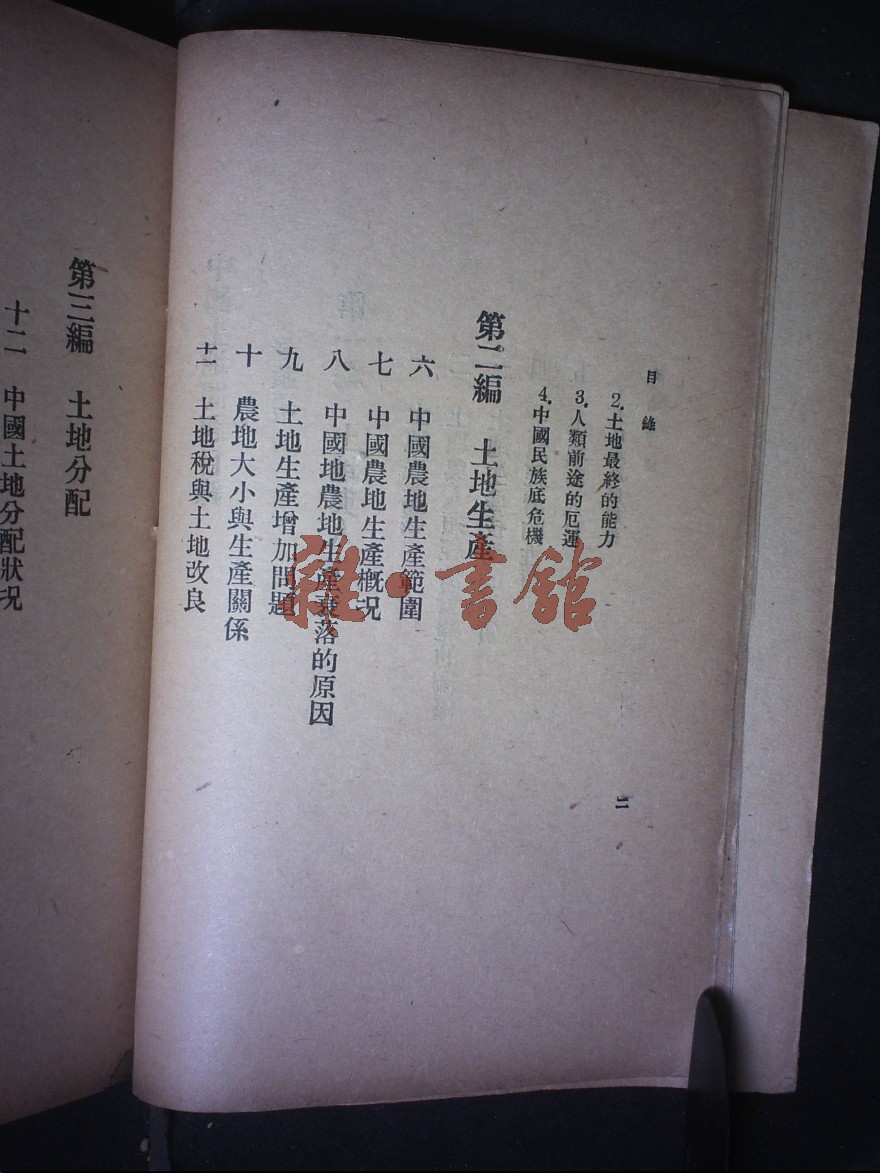 目錄
2.土地最終的能力
3.人類前途的厄運
4.中國民族底危機
第二編 土地生產
六 中國農地生產範圍
七 中國農地生產概況
八 中國地農地生產衰落的原因
九 土地生產增加問題
十 農地大小與生產關係
十一 土地稅與土地改良
二
第三編 土地分配
十二 中國土地分配狀況
雜·書館